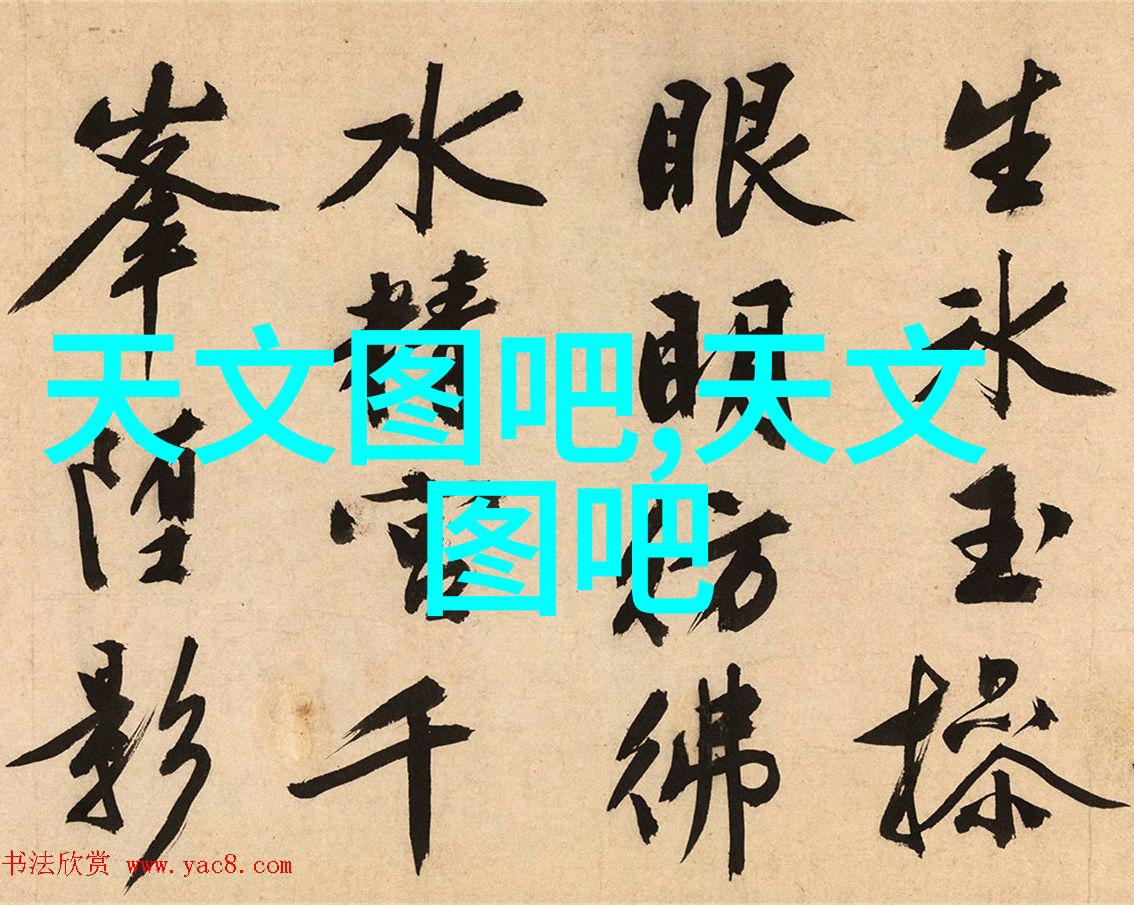 生氷玉操
眼仿佛
水精宫千
峯堕影
天文图吧,天文
图吧
书法欣赏 www.yac8.com